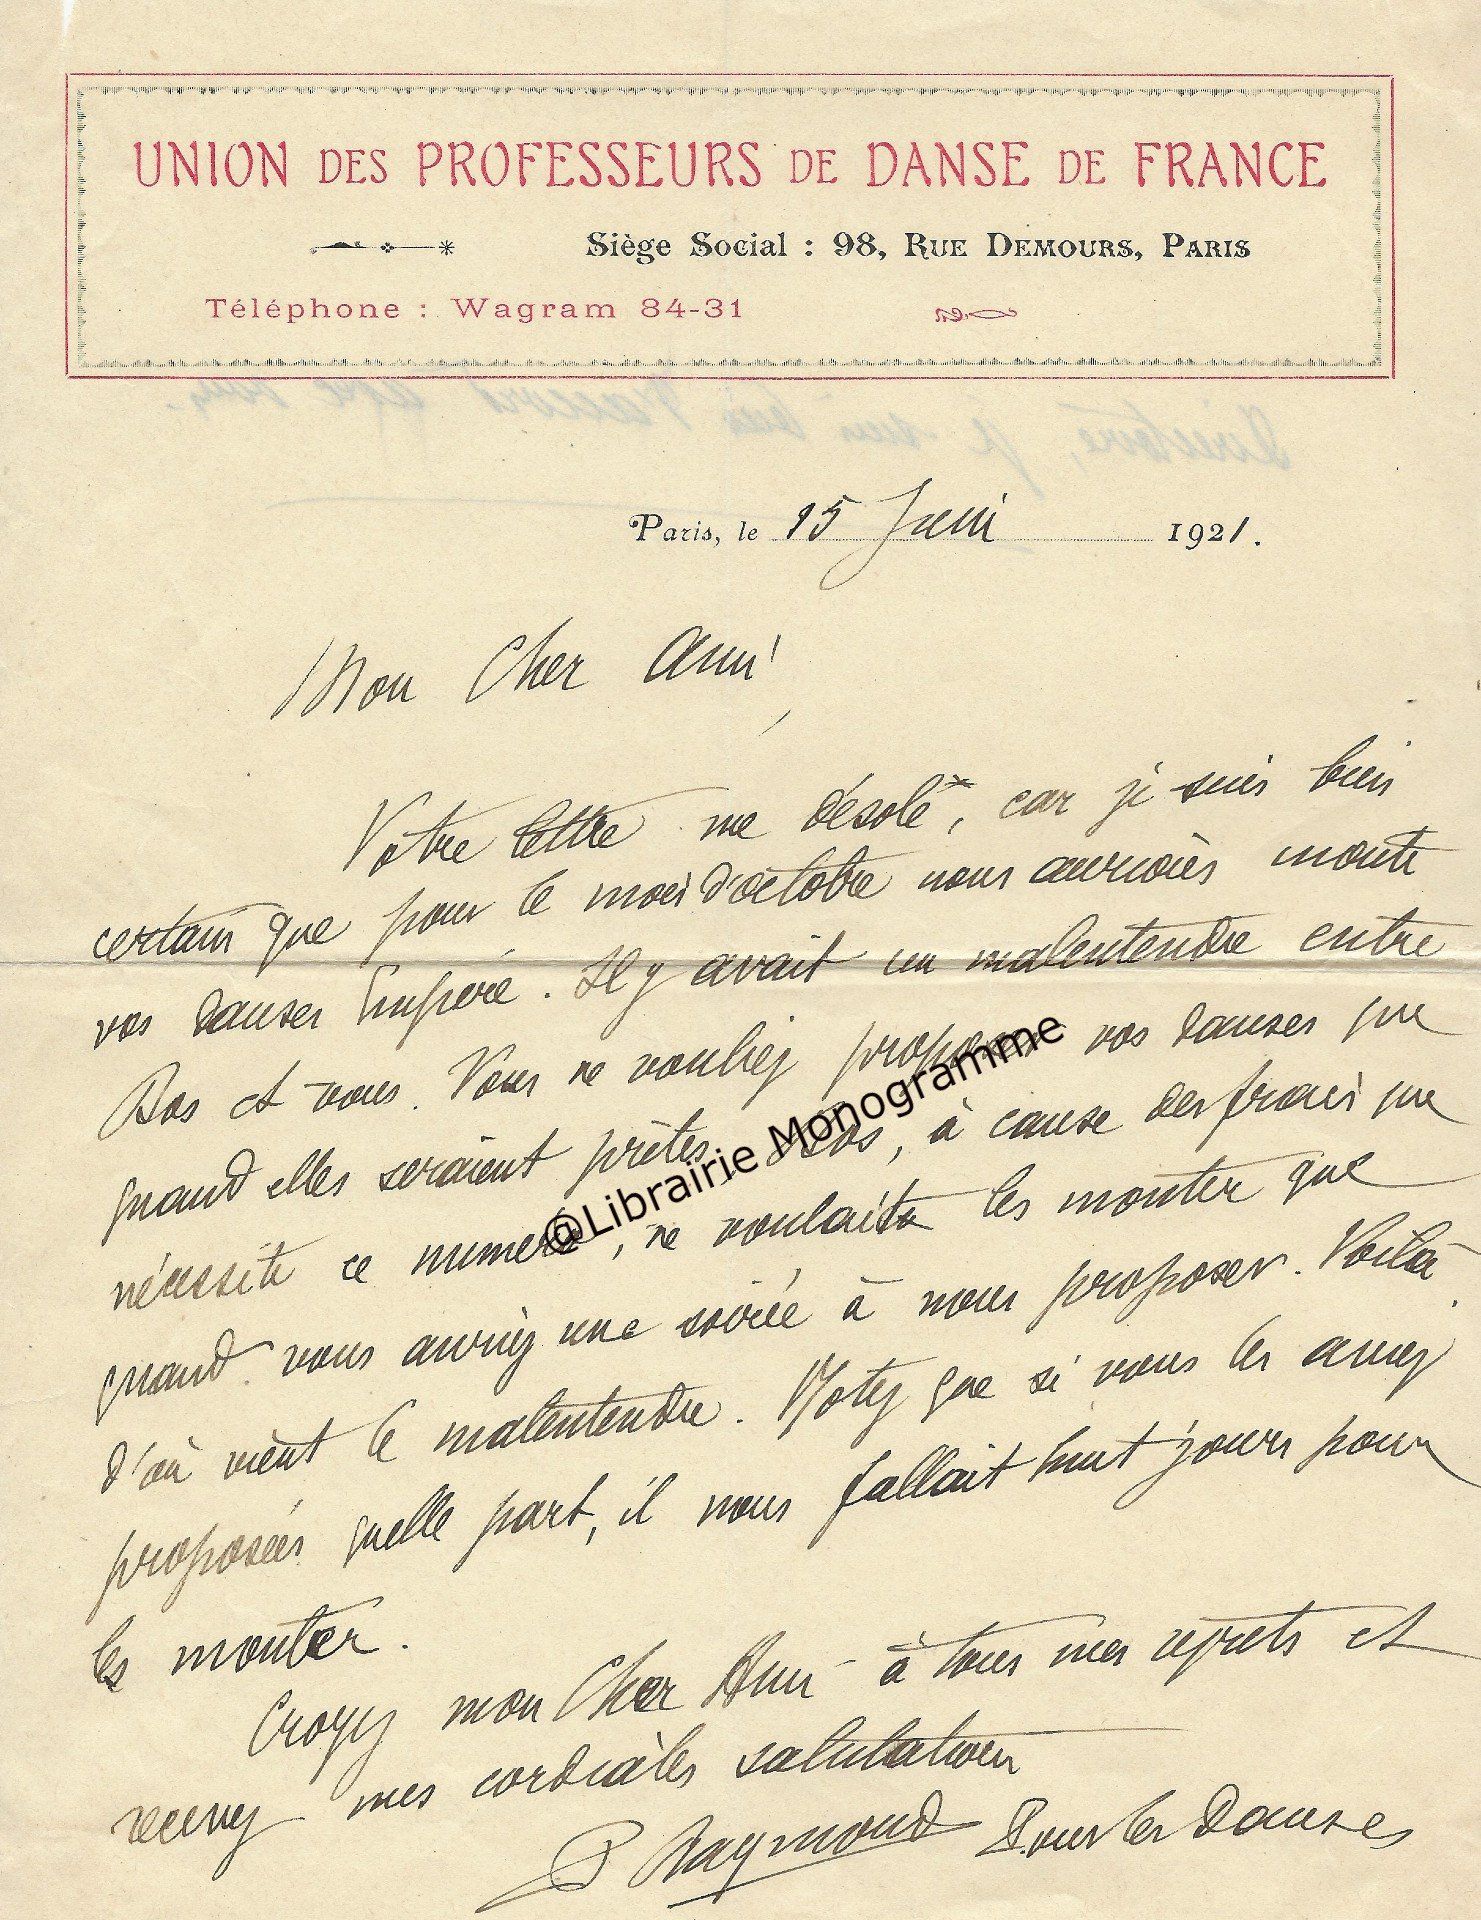 UNION DES PROFESSEURS DE DANSE DE FRANCE
Siège Social : 98, RUE DEMOURS, PARIS
Téléphone : Wagram 84-31
Directoire, je suis bien d'accord avec vous.
Paris, le 15 Juin 1921.
Mon Cher Ami,
Votre lettre me désole, car je suis bien
certain que pour le mois d'octobre nous aurions monté
vos danses Empire. Il y avait un malentendu entre
Bos et vous. Vous ne vouliez proposer vos danses que
quand elles seraient prêtes, Bos, à cause des frais que
nécessite ce numéro, ne voulait les monter que
quand vous auriez une soirée à nous proposer. Voilà
d'où vient le malentendu. Notez que si vous les aviez
proposées quelle part, il nous fallait huit jours pour
les monter.
Croyez mon Cher Ami à tous mes regrets et
recevez mes cordiales salutations
P Raymond Pour les Danses
@Librairie Monogramme